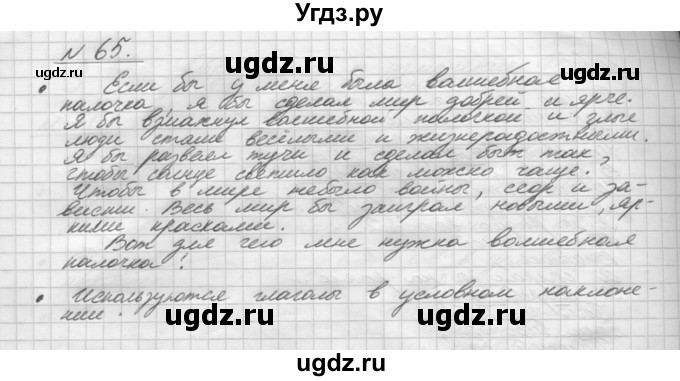 Угдз.ру
№ 65.
• Если бы у меня была волшебная
палочка, я бы сделал мир добрей и ярче.
Я бы взмахнул волшебной палочкой и злые
люди стали весёлыми и жизнерадостными.
Я бы развеял тучи и сделал бы так,
чтобы солнце светило как можно чаще.
Чтобы в мире небыло войны, ссор и за-
висти. Весь мир бы заиграл новыми, яр-
кими красками.
Вот для чего мне нужна волшебная
палочка!
• Используются глаголы в условном наклоне-
нии.
ugdz.ru ugdz.ru ugdz.ru
ugdz.ru ugdz.ru
ugdz.ru ugdz.ru ugdz.ru
ugdz.ru ugdz.ru
ugdz.ru ugdz.ru ugdz.ru